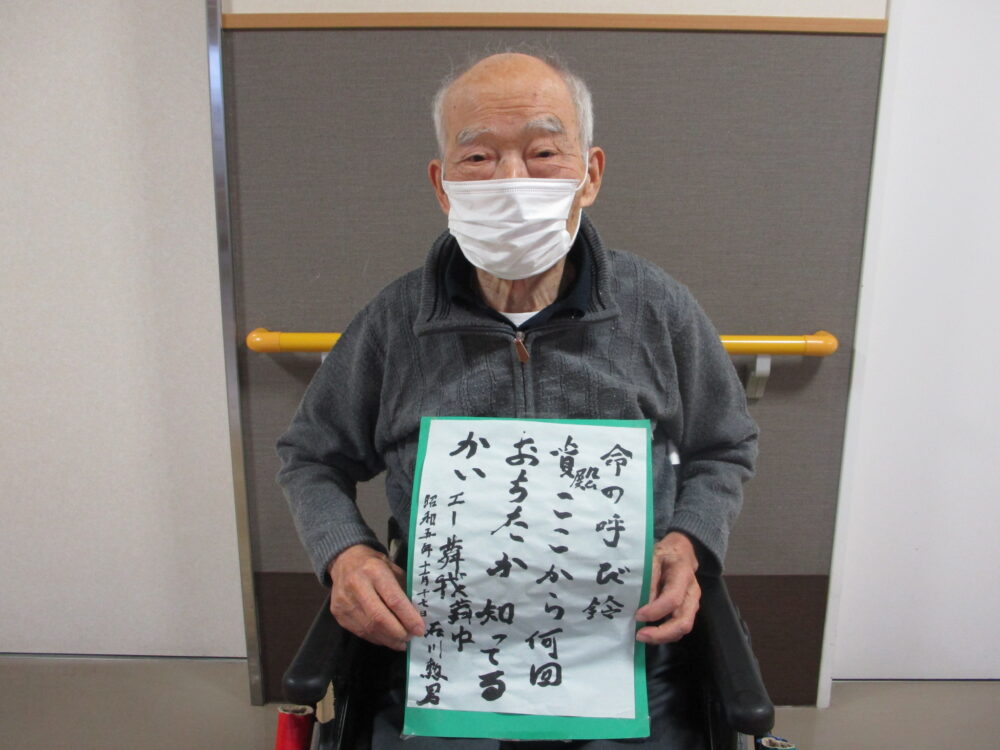 命の呼び鈴
貴殿ここから何回
おちたか知ってる
かい
エー
昭和五年十一月十七日 石川